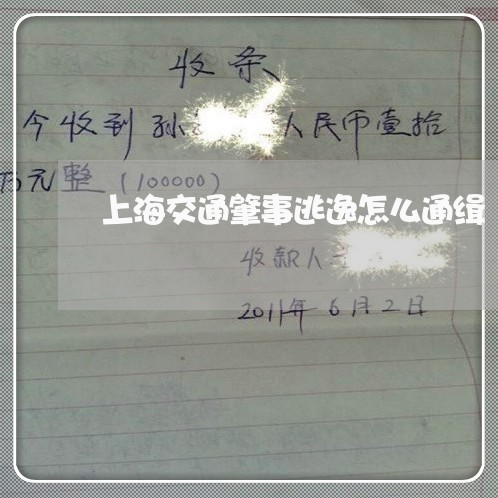 收条
今收到孙 人民币壹拾
万元整(100000)
上海交通肇事逃逸怎么通缉
收款人
2011年6月2日